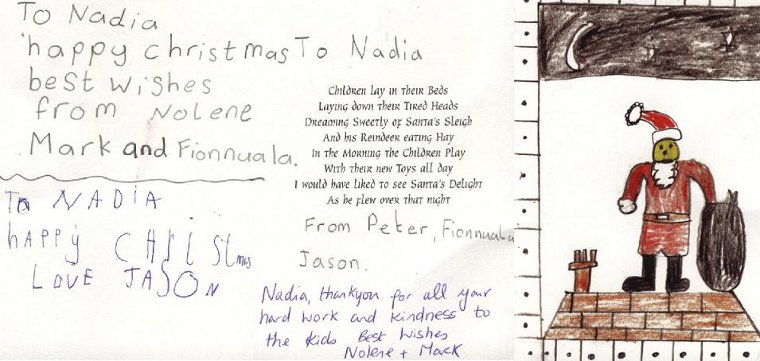 To Nadia
happy christmas To Nadia
best wishes
from Nolene
Mark and Fionnuala.
To NADiA
hAPPy CHRISTmas
LOVE JASON
Children lay in their Beds
Laying down their Tired Heads
Dreaming Sweetly of Santa's Sleigh
And his Reindeer eating Hay
In the Morning the Children Play
With their new Toys all day
I would have liked to see Santa's Delight
As he flew over that night
From Peter, Fionnuala
Jason.
Nadia, thankyou for all your
hard work and kindness to
the kids Best Wishes
Nolene + Mark